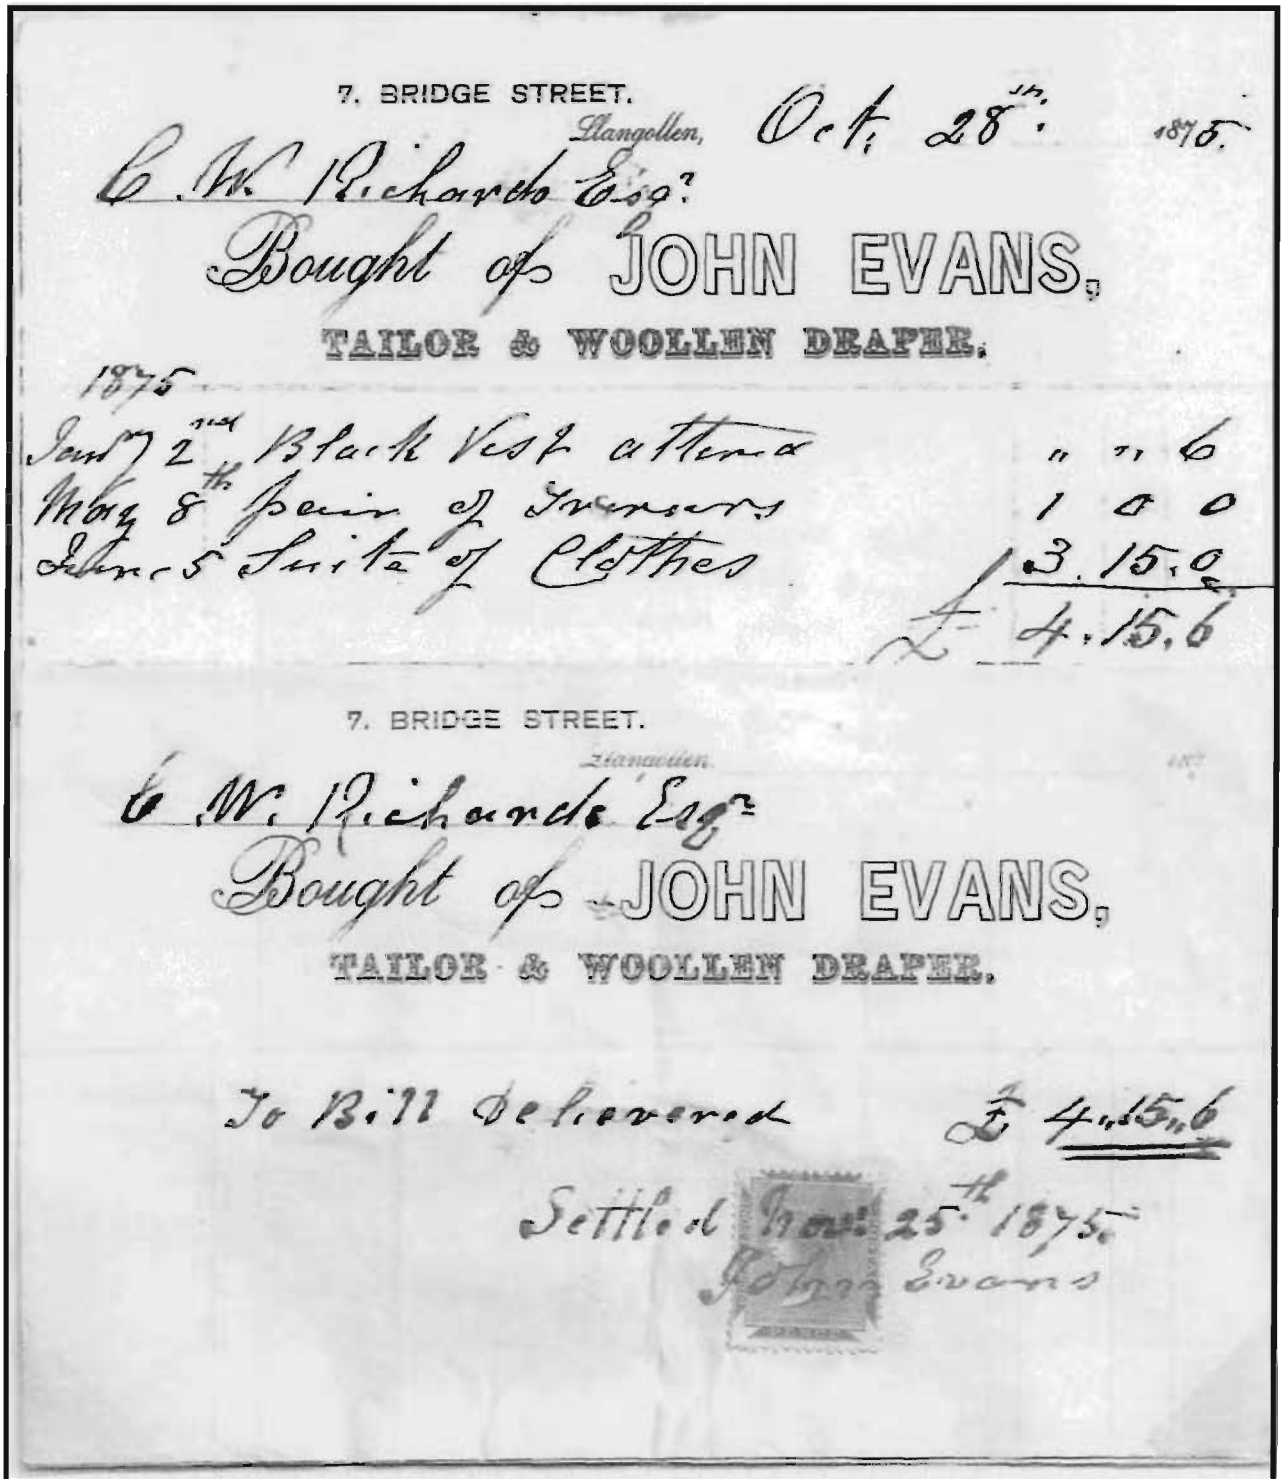 7. BRIDGE STREET.
Llangollen, Oct. 28th. 1875.
C. W. Richards Esqr.
Bought of JOHN EVANS,
TAILOR & WOOLLEN DRAPER.
1875
Jany 2nd Black Vest altered " " 6
May 8th pair of Trousers 1 0 0
June 5 Suite of Clothes 3. 15. 0
£ 4. 15. 6
7. BRIDGE STREET.
Llangollen, 187
C. W. Richards Esqr
Bought of JOHN EVANS,
TAILOR & WOOLLEN DRAPER.
To Bill Delievered £ 4„15„6
Settled Novr 25th 1875.
John Evans